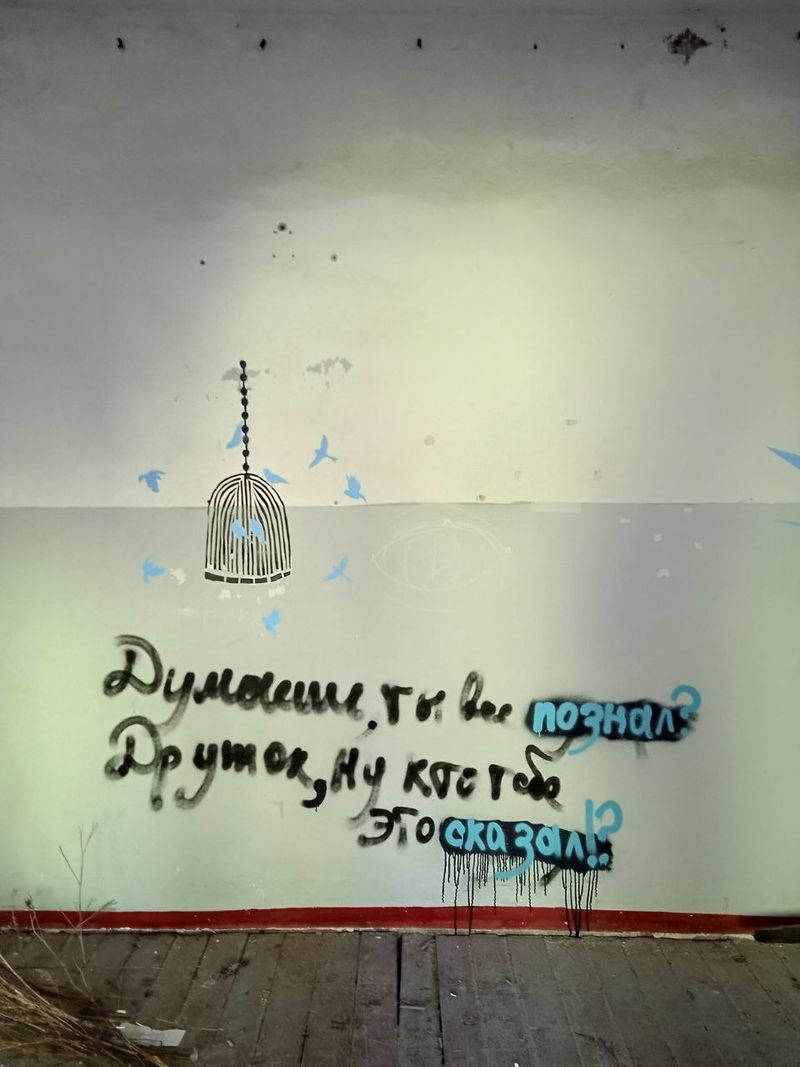 Думаешь, ты все познал?
Дружок, ну кто тебе
это сказал!?